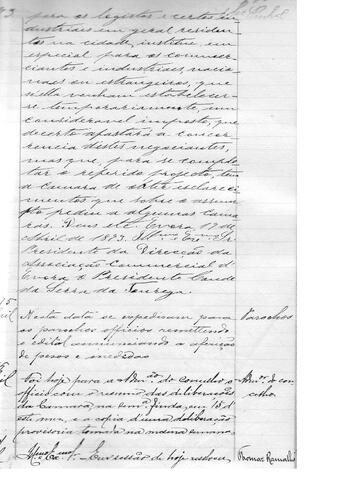 para os logistas e certos in
dustriaes em geral residen
tes na cidade, institue, em
especial para os commer
ciantes e industriaes, nacio
naes ou estrangeiros, que
n'ella venham estabelecer-
se temporariamente, um
consideravel imposto, que
decerto afastará a concor
rencia destes negociantes,
mas que, para se comple
tar o referido projecto, tem
a Camara de obter esclareci
mentos que sobre o assum
pto pediu a algumas Cama
ras. Deus etc. Evora 17 de
Abril de 1893. Illmo e Exmo Sr
Presidente da Direcção da
Associação Commercial d'
Evora. O Presidente Conde
da Serra da Tourega.
Nesta data se expediram para
os parochos officios remettendo
o edital annunciando a aferição
de pesos e medidas
Parochos
Foi hoje para a Admão. do concelho o
officio com o resumo das deliberações
da Camara, na semna finda, em 15 d'
este mez, e a copia d'uma deliberação
provisoria tomada na mesma semana.
Admor. do con
celho.
Illmo Exmo Sr. Em sessão de hoje resolveu
Thomaz Ramalho